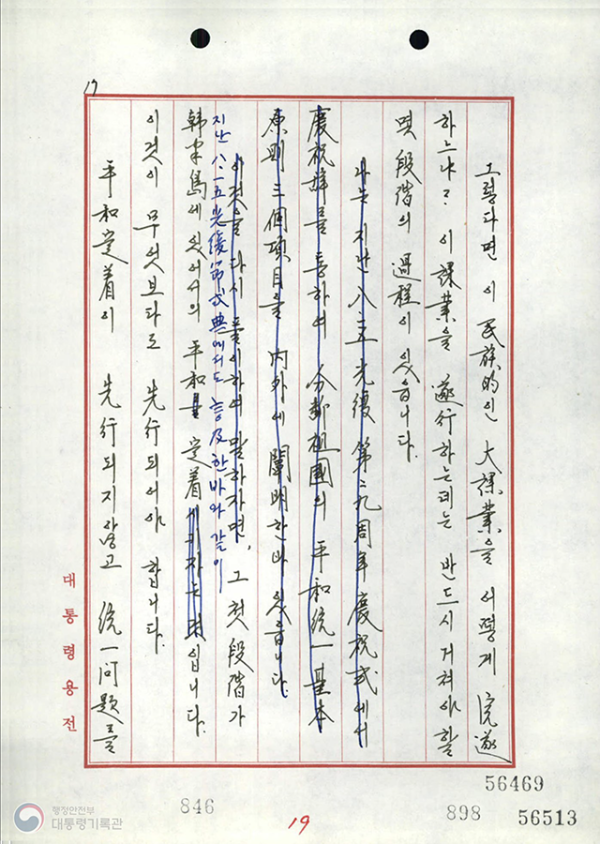 17
그렇다면 이 民族的인 大課業을 어떻게 完遂
하느냐? 이 課業을 遂行하는데는 반드시 거쳐야 할
몇 段階의 過程이 있읍니다.
나는 지난 八.一五 光復 第二九周年 慶祝式에서
慶祝辞를 통하여 分断祖國의 平和統一 基本
原則 三個項目을 內外에 闡明한바 있읍니다.
이것을 다시 풀이하여 말하자면, 그 첫 段階가
지난 八.一五光復節式典에서도 言及한바와 같이
韓半島에 있어서의 平和 定着시키자는 것입니다.
이것이 무엇보다도 先行되어야 합니다.
平和定着이 先行되지 않고 統一问題를
대통령용전
56469
846
898
56513
19
행정안전부
대통령기록관